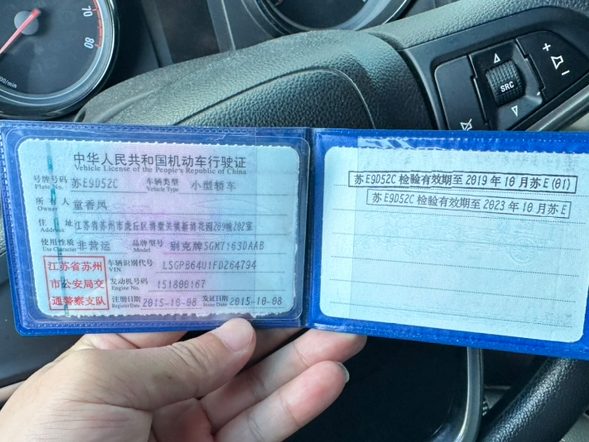 70
80
中华人民共和国机动车行驶证
Vehicle License of the People's Republic of China
号牌号码 苏E9D52C 车辆类型 小型轿车
Plate No. Vehicle Type
所有人 童香凤
Owner
住址
Address
使用性质 非营运 品牌型号 别克牌SGM7163DAAB
Use Character Model
江苏省苏州市公安局交通警察支队
车辆识别代号 LSGPB64U1FD264794
VIN
发动机号码 151800167
Engine No.
注册日期 2015-10-08 发证日期 2015-10-08
Register Date Issue Date
苏E9D52C 检验有效期至 2019年10月苏E(01)
苏E9D52C 检验有效期至 2023年10月苏E
SRC
+
-